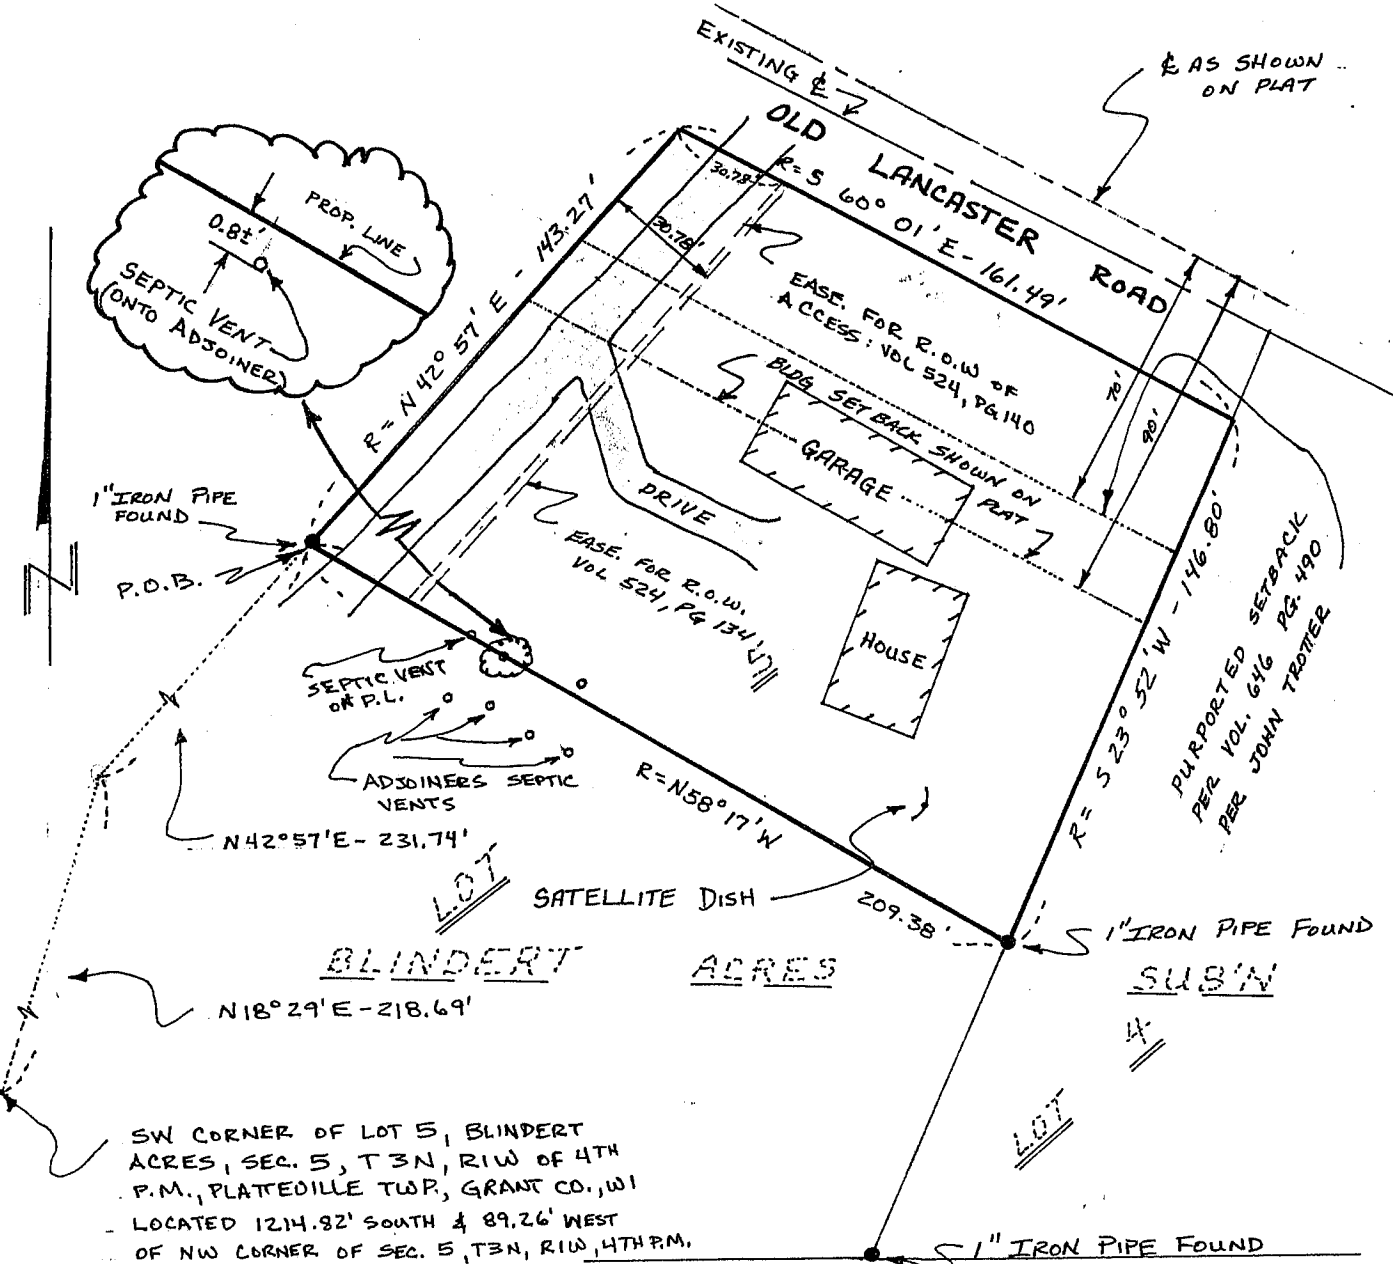 EXISTING ℄
℄ AS SHOWN
ON PLAT
OLD LANCASTER ROAD
R= S 60° 01' E - 161.49'
30.78'
30.78'
PROP. LINE
0.8±'
SEPTIC VENT
(ONTO ADJOINER)
R= N 42° 57' E - 143.27'
EASE. FOR R.O.W OF
ACCESS: VOL 524, PG 140
70'
90'
BLDG SETBACK SHOWN ON
PLAT
GARAGE
1" IRON PIPE
FOUND
P.O.B.
DRIVE
EASE. FOR R.O.W.
VOL 524, PG 134
HOUSE
R= S 23° 52' W - 146.80'
PURPORTED SETBACK
PER VOL. 646 PG. 490
PER JOHN TROTTER
SEPTIC VENT
ON P.L.
ADJOINERS SEPTIC
VENTS
R= N58° 17' W
209.38'
N 42° 57' E - 231.74'
LOT
SATELLITE DISH
1" IRON PIPE FOUND
BLINDERT ACRES SUB'N
N 18° 29' E - 218.69'
LOT 4
SW CORNER OF LOT 5, BLINDERT
ACRES, SEC. 5, T 3N, R1W OF 4TH
P.M., PLATTEVILLE TWP., GRANT CO., WI
LOCATED 1214.82' SOUTH & 89.26' WEST
OF NW CORNER OF SEC. 5, T3N, R1W, 4TH P.M.
1" IRON PIPE FOUND